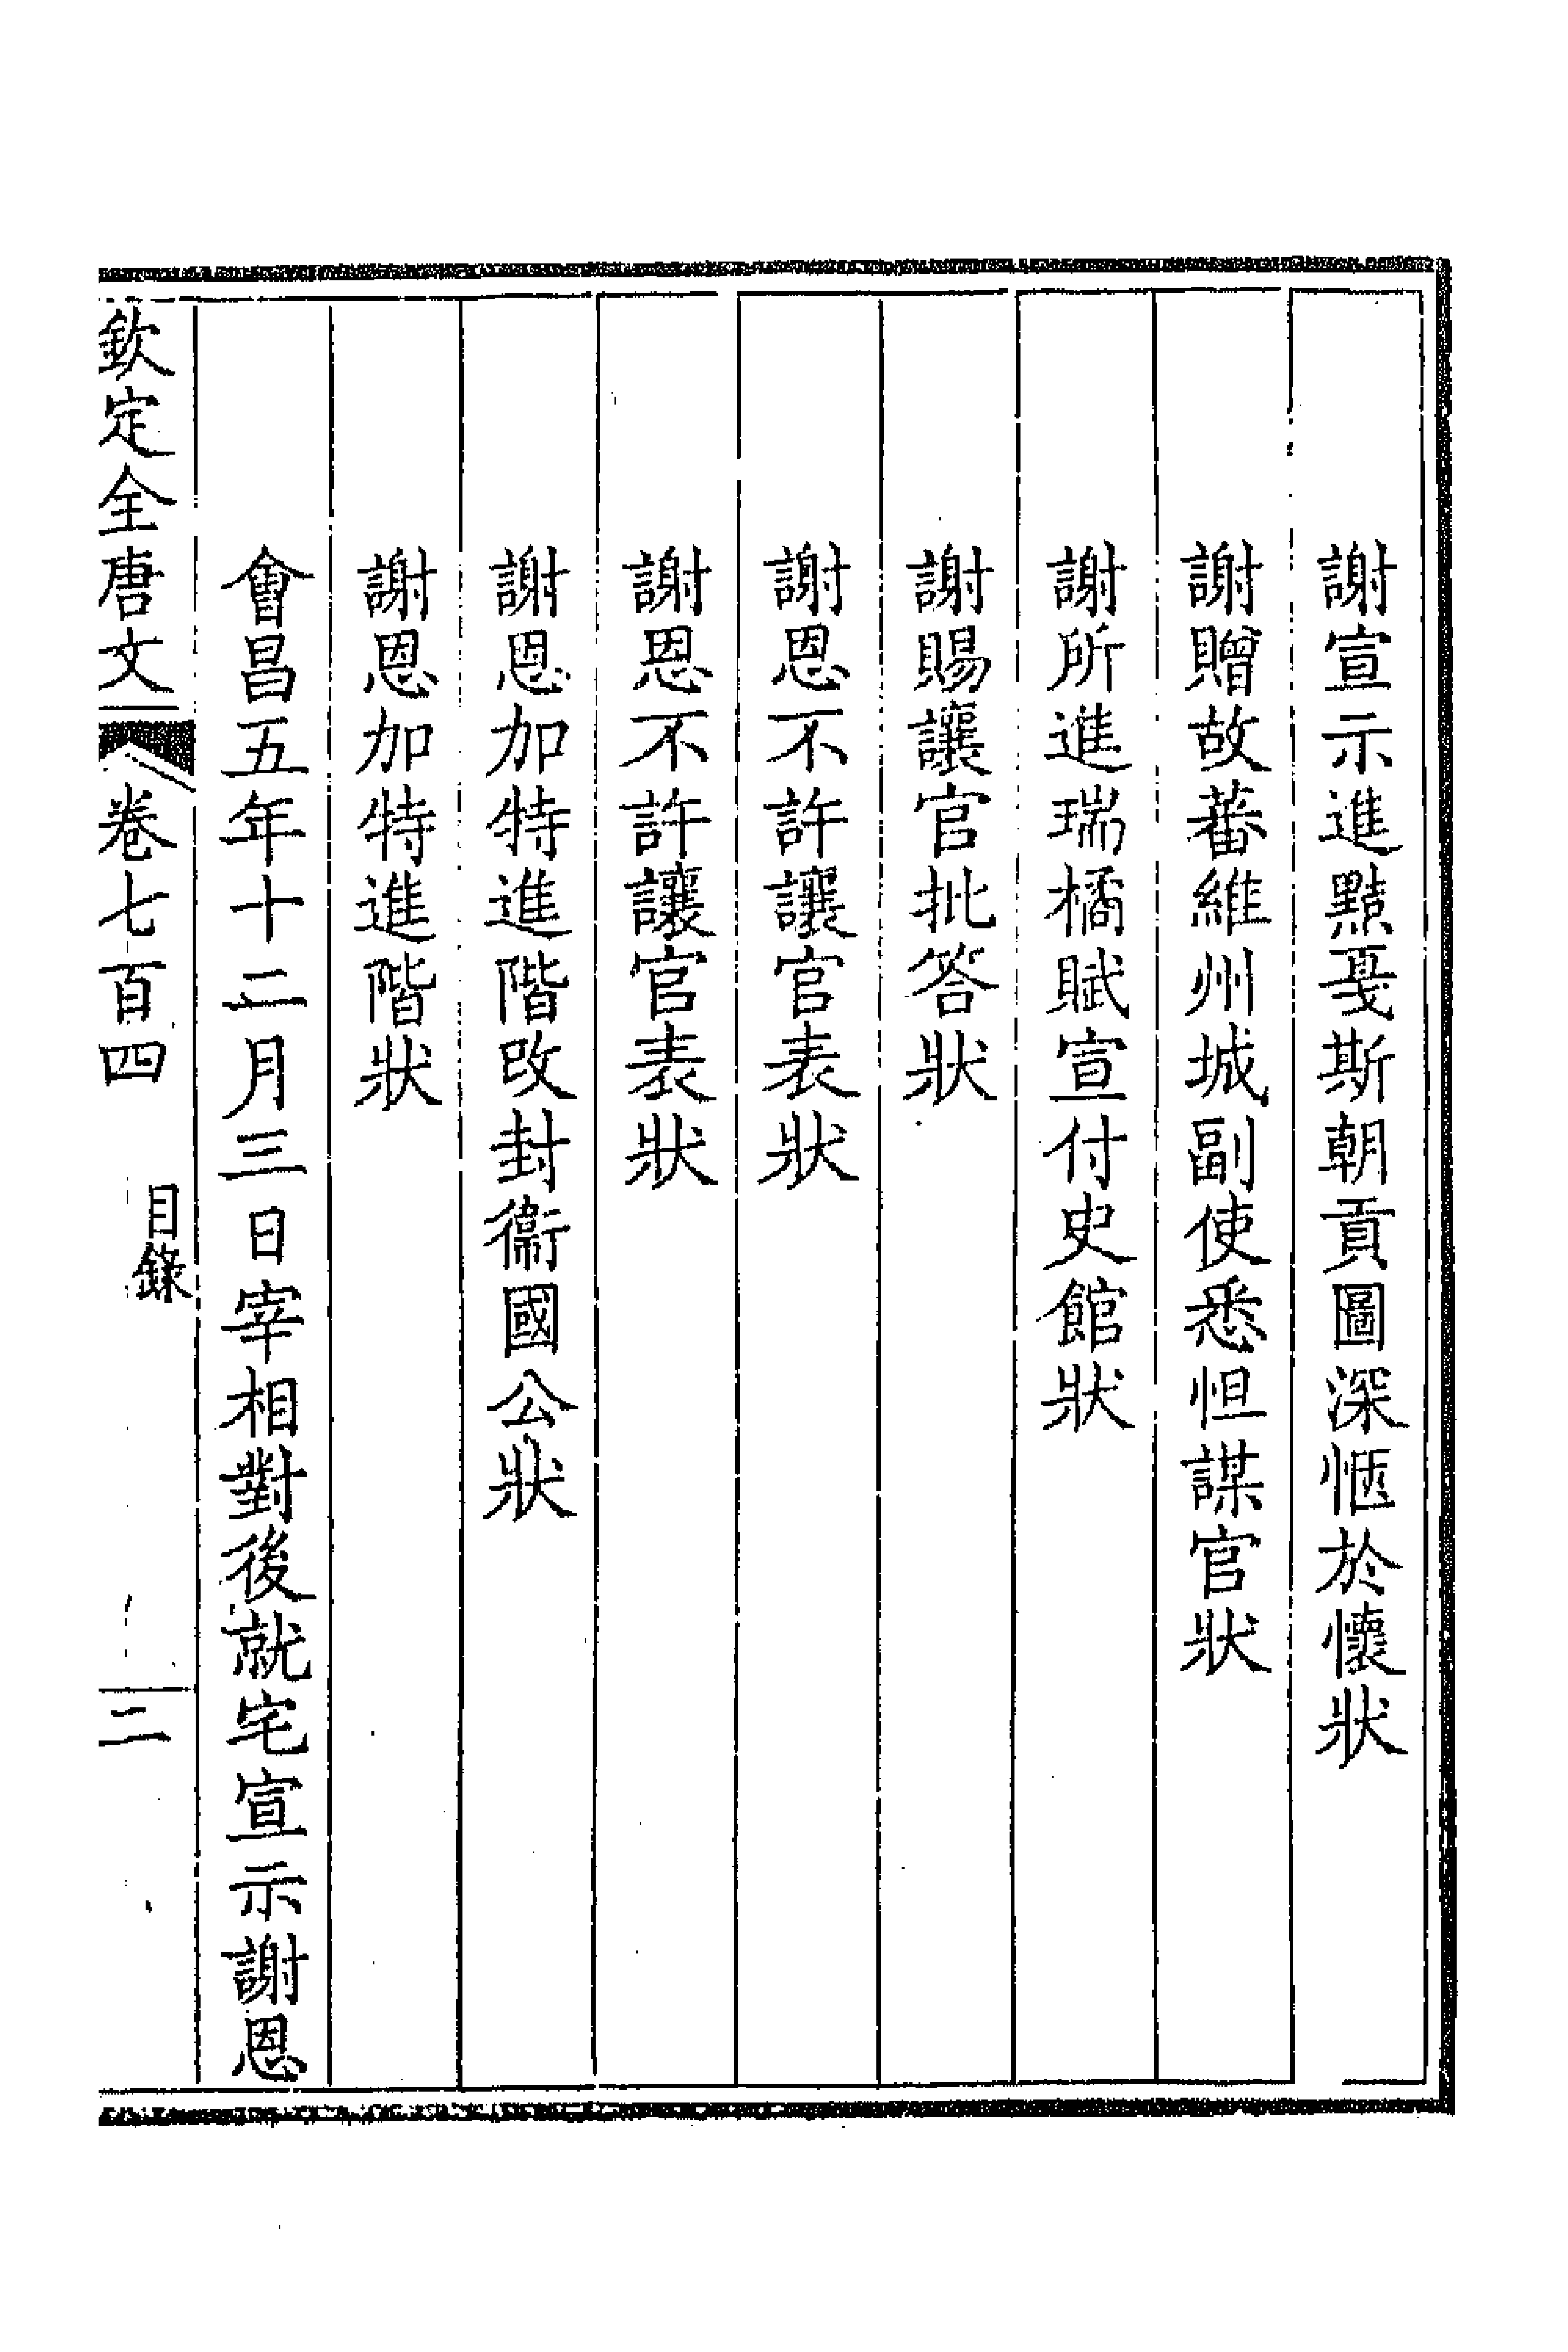 謝宣示進黠戛斯朝貢圖深愜於懷狀
謝贈故蕃維州城副使悉怛謀官狀
謝所進瑞橘賦宣付史館狀
謝賜讓官批答狀
謝恩不許讓官表狀
謝恩不許讓官表狀
謝恩加特進階改封衞國公狀
謝恩加特進階狀
會昌五年十二月三日宰相對後就宅宣示謝恩
欽定全唐文 卷七百四 目錄 二